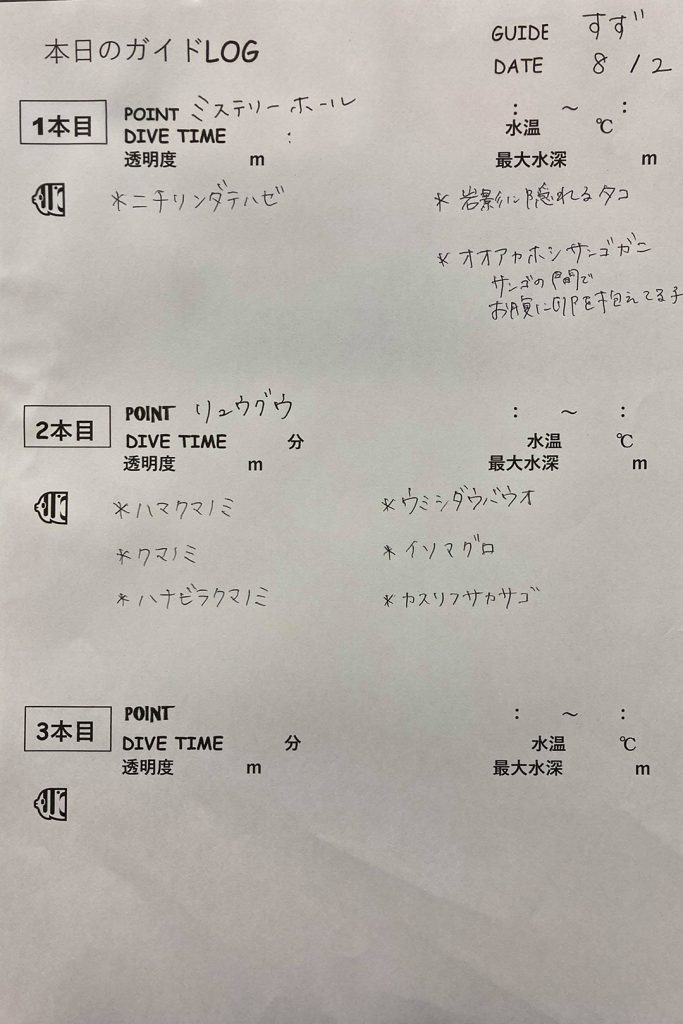 本日のガイドLOG
GUIDE すず
DATE 8/2
1本目
POINT ミステリーホール
: ～ :
DIVE TIME :
水温 ℃
透明度 m
最大水深 m
*ニチリンダテハゼ
*岩影に隠れるタコ
*オオアカホシサンゴガニ
サンゴの間で
お腹に卵を抱えてる子
2本目
POINT リュウグウ
: ～ :
DIVE TIME 分
水温 ℃
透明度 m
最大水深 m
*ハマクマノミ
*ウミシダウバウオ
*クマノミ
*イソマグロ
*ハナビラクマノミ
*カスリフサカサゴ
3本目
POINT
: ～ :
DIVE TIME 分
水温 ℃
透明度 m
最大水深 m